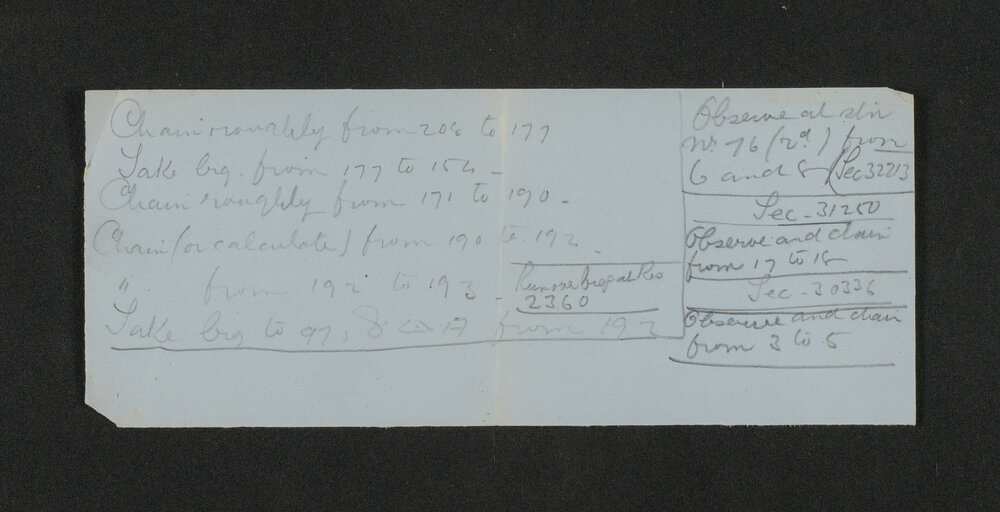 Chain roughly from 208 to 177
Take brg. from 177 to 154 -
Chain roughly from 171 to 190 -
Chain (or calculate) from 190 to 192 -
" from 192 to 193 -
Take brg to 97, & from 193
2360
Observe at stn
No 76 (2d) from
6 and 8 (Sec 32213
Sec - 31250
Observe and chain
from 17 to 18
Sec - 30336
Observe and chain
from 3 to 5